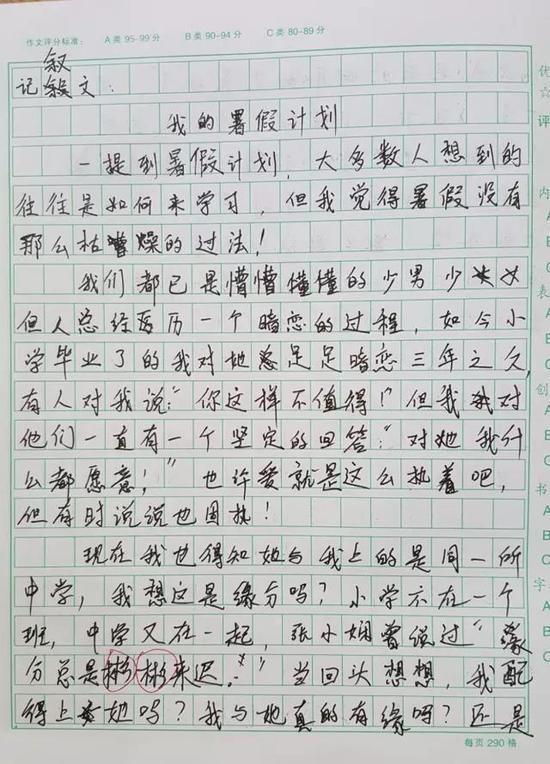 作文评分标准： A类 95-99分 B类 90-94分 C类 80-89分
叙
记文：
我的暑假计划
一提到暑假计划，大多数人想到的
往往是如何来学习，但我觉得暑假没有
那么枯燥的过法！
我们都已是懵懵懂懂的少男少女
但人总经历一个暗恋的过程，如今小
学毕业了的我对她足足暗恋三年之久，
有人对我说：“你这样不值得！”但我对
他们一直有一个坚定的回答：“对她我什
么都愿意！”也许爱就是这么执着吧，
但有时说说也固执！
现在我也得知她与我上的是同一所
中学，我想这是缘分吗？小学不在一个
班，中学又在一起，张小娴曾说过“缘
分总是彬彬来迟。”当回头想想，我配
得上她吗？我与她真的有缘吗？还是
每页 290 格
优
☆
评
内
A
B
C
表
A
B
C
创
A
B
C
书
A
B
C
字
A
B
C